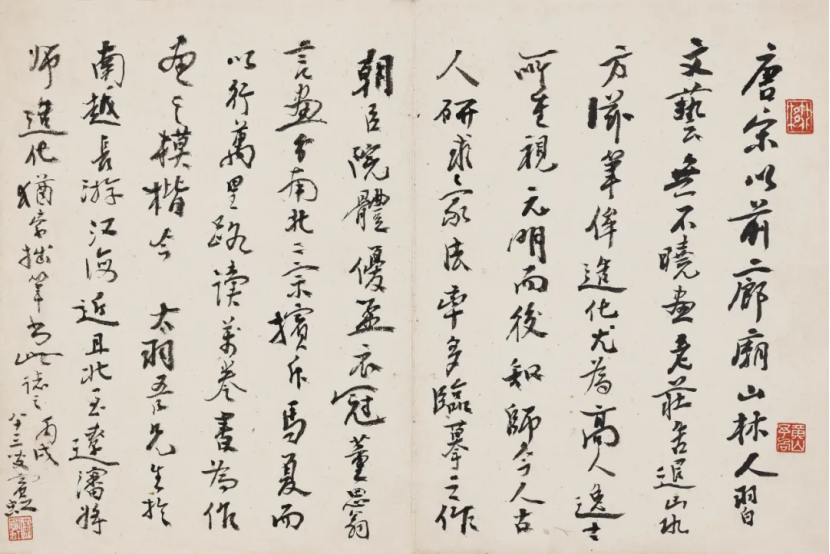 唐宋以前廊廟山林人習
文藝無不曉畫老莊告退山水
方滋筆侔造化尤為高人逸士
所重視元明而後知師今人古
人研求家法率多臨摹之作
朝臣院體優孟衣冠董思翁
言畫分南北二宗擯斥馬夏而
以行萬里路讀萬卷書為作
畫之模楷 太羽吾兄生於
南越長游江海近且北至遼瀋將
師造化猶索拙筆書此誌之 丙戌
八十三叟賓虹
黃山